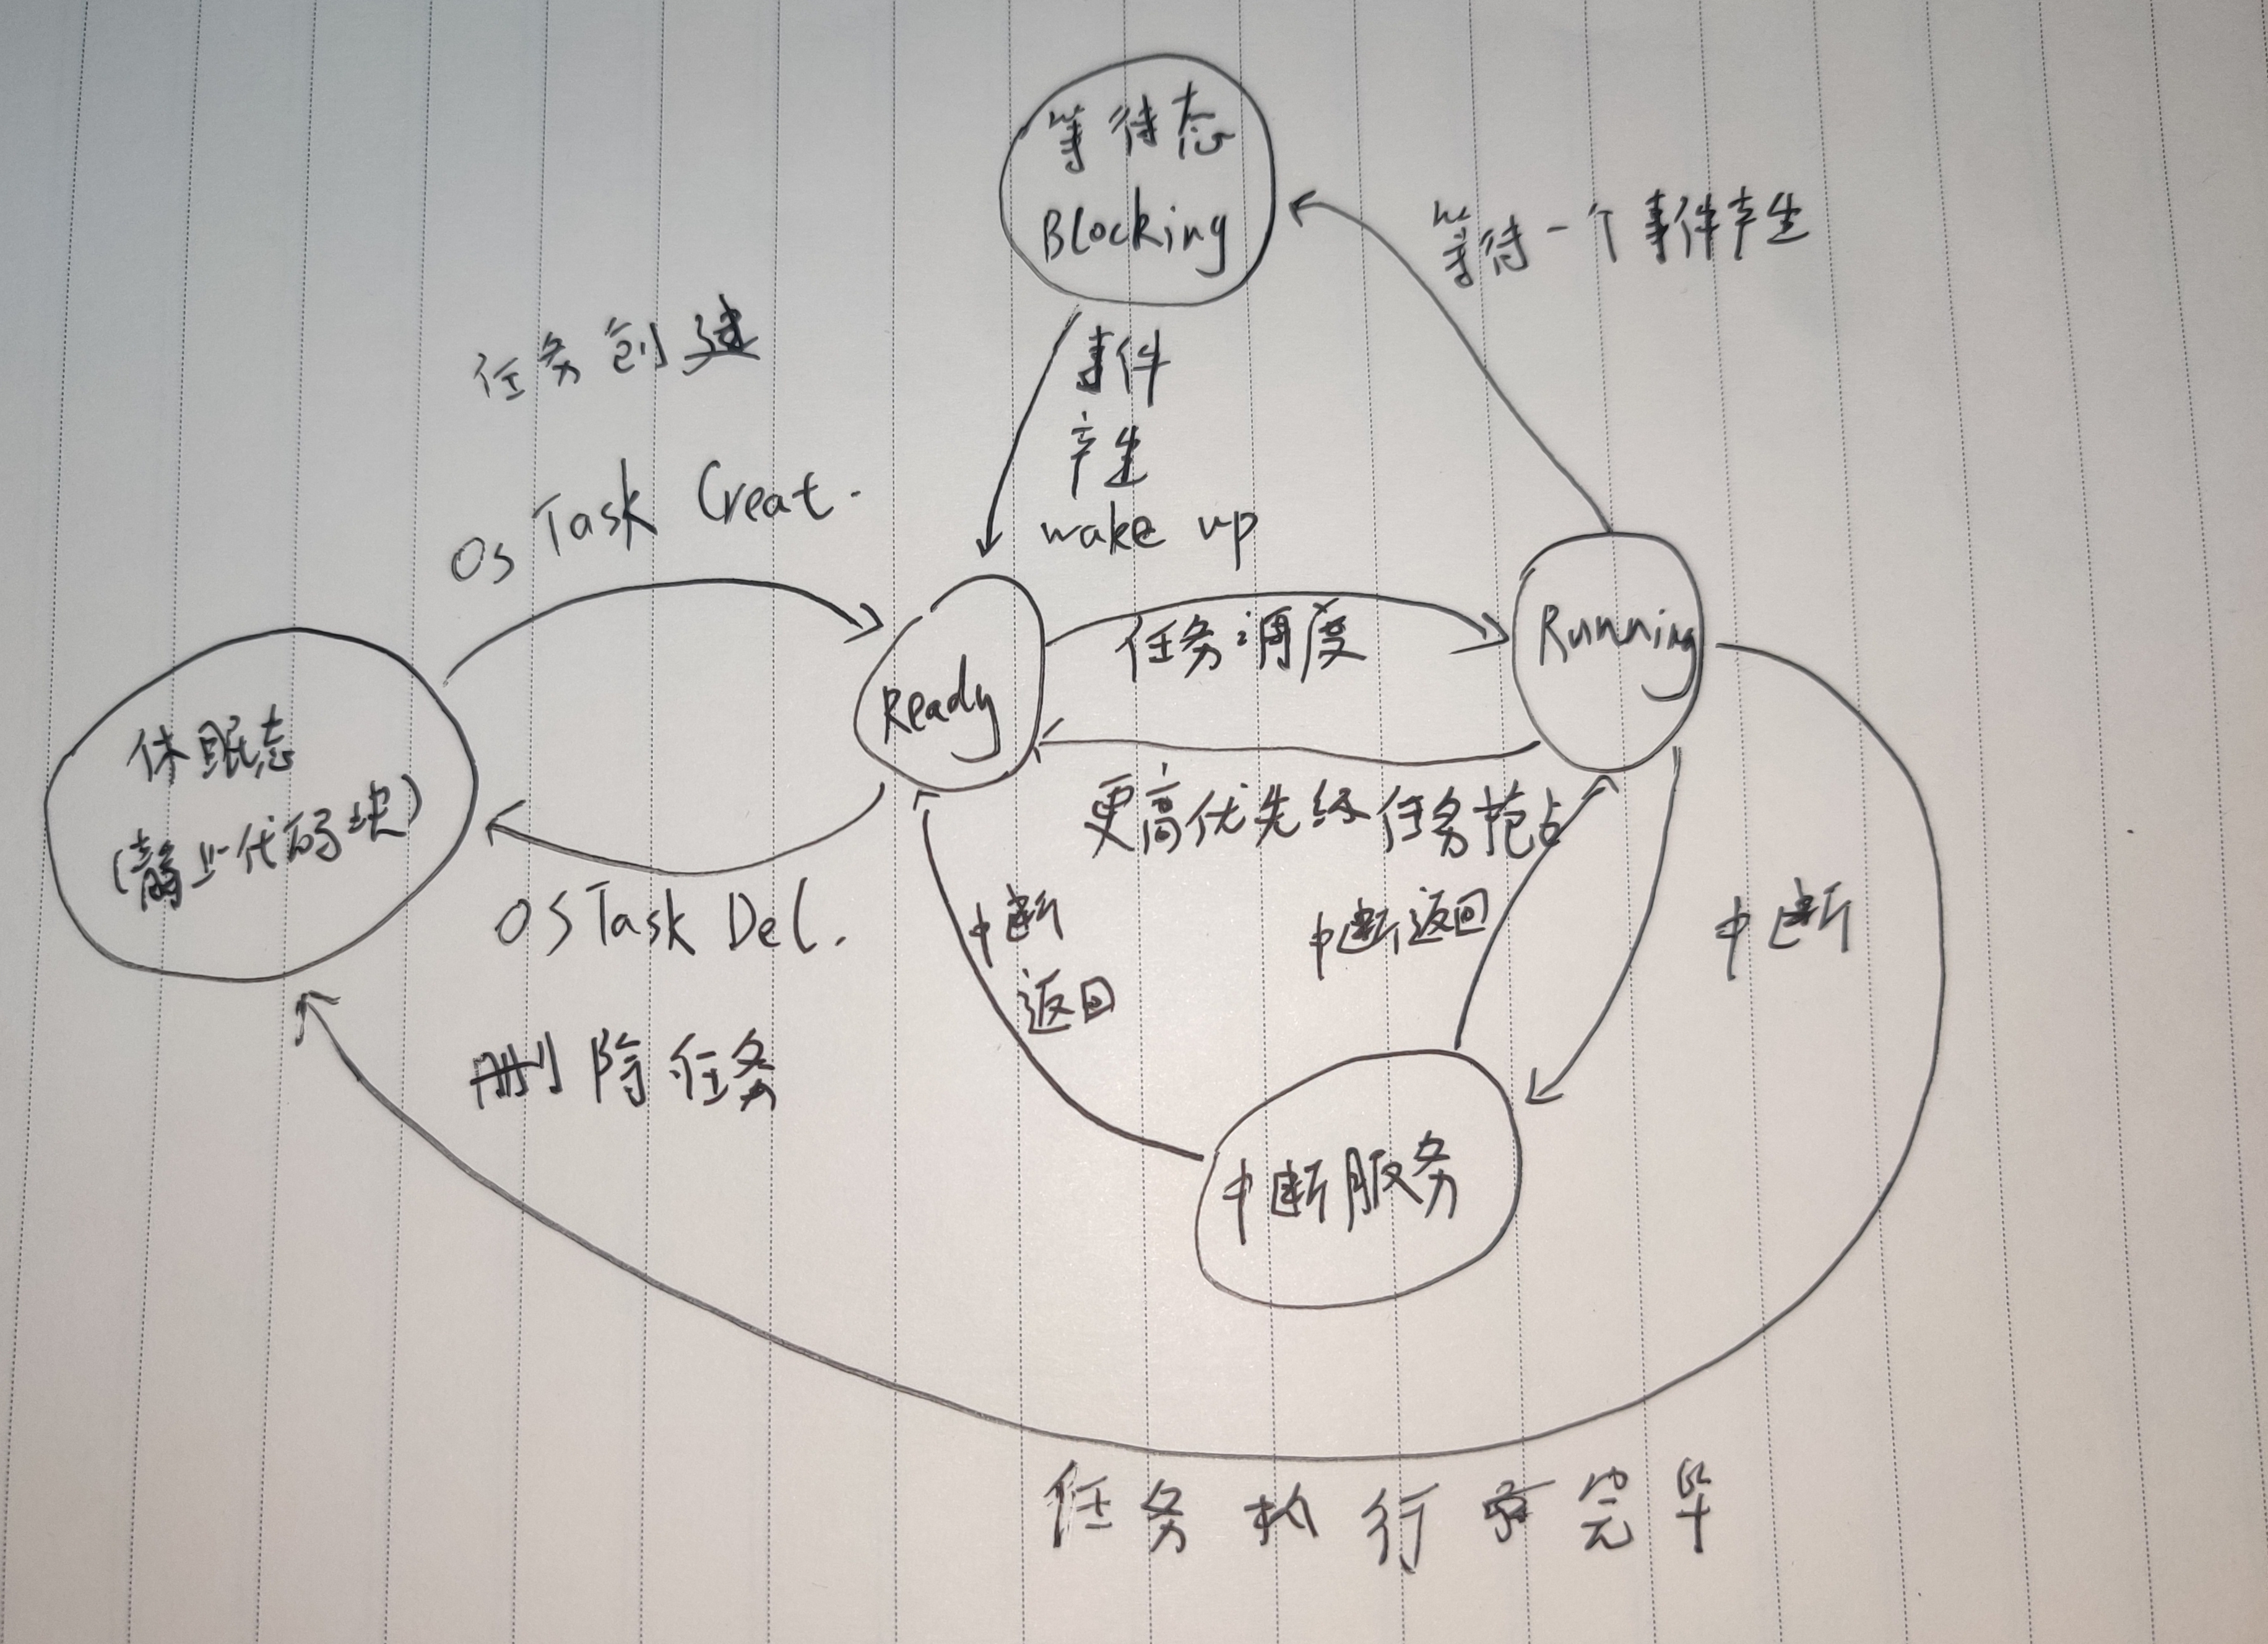 等待态
Blocking
等待一个事件产生
任务创建
事件
产生
wake up
OS Task Creat.
Ready
任务调度
Running
休眠态
(静止代码块)
更高优先级任务抢占
OS Task Del.
中断
返回
中断返回
中断
删除任务
中断服务
任务执行完毕